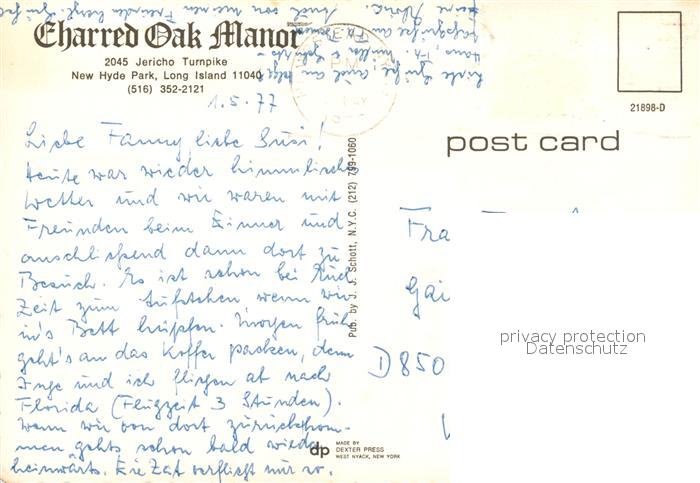 Charred Oak Manor
2045 Jericho Turnpike
New Hyde Park, Long Island 11040
(516) 352-2121
1.5.77
Liebe Fanny, liebe Susi!
Heute war wieder himmlisch
Wetter und wir waren mit
Freunden beim Dinner und
anschließend dann dort zu
Besuch. Es ist schon bei Euch
Zeit zum Aufstehen wenn wir
in's Bett hüpfen. Morgen früh
geht's an das Koffer packen, denn
Inge und ich fliegen ab nach
Florida (Flugzeit 3 Stunden).
Wenn wir von dort zurückkom-
men gehts schon bald wieder
heimwärts. Die Zeit verfliegt nur so.
Liebe Grüße auch an
Hans,
Auch von meinen Freunden
Pub. by J. J. Schott, N.Y.C. (212) 799-1060
dp
MADE BY
DEXTER PRESS
WEST NYACK, NEW YORK
PM
21898-D
post card
Fra
Gai
D 850
privacy protection
Datenschutz